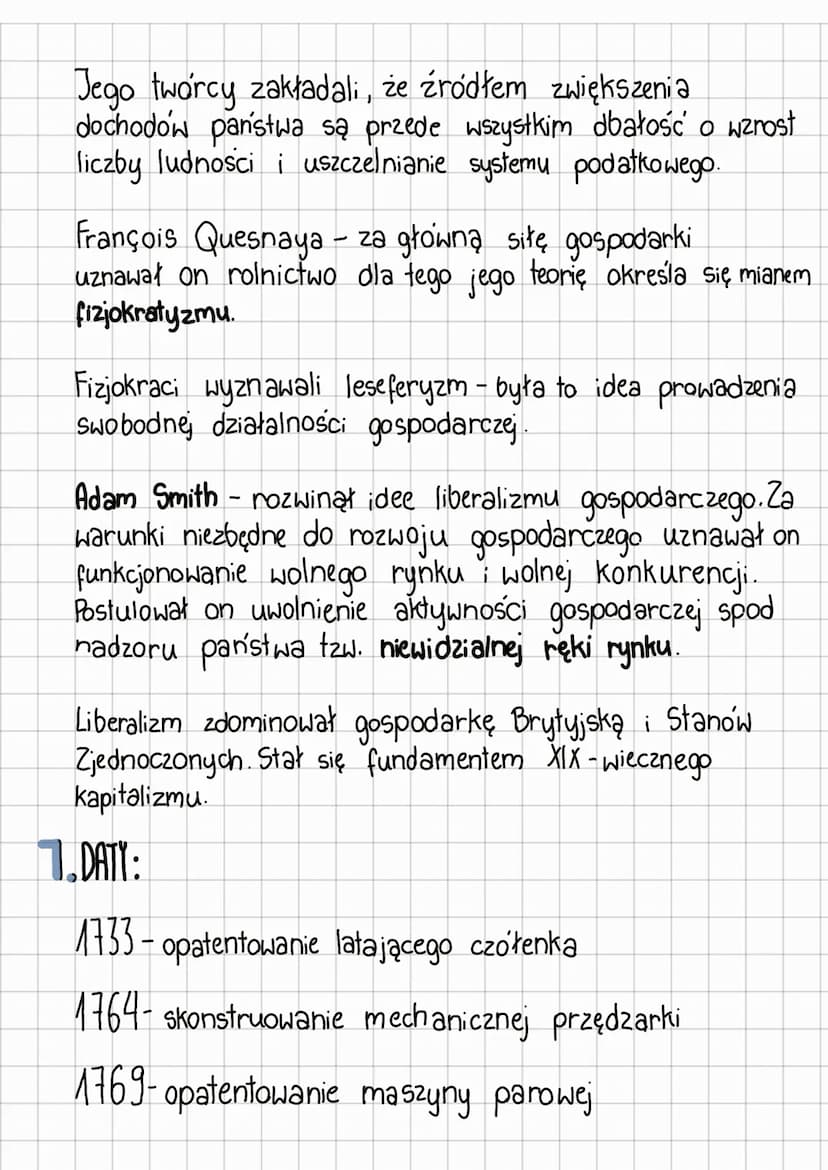 Jego twórcy zakładali, że źródłem zwiększenia
dochodów państwa są przede wszystkim dbałość o wzrost
liczby ludności i uszczelnianie systemu podatkowego.
François Quesnaya - za główną siłę gospodarki
uznawał on rolnictwo dla tego jego teorię określa się mianem
fizjokratyzmu.
Fizjokraci wyznawali leseferyzm - była to idea prowadzenia
swobodnej działalności gospodarczej.
Adam Smith - rozwinął idee liberalizmu gospodarczego. Za
warunki niezbędne do rozwoju gospodarczego uznawał on
funkcjonowanie wolnego rynku i wolnej konkurencji.
Postulował on uwolnienie aktywności gospodarczej spod
nadzoru państwa tzw. niewidzialnej ręki rynku.
Liberalizm zdominował gospodarkę Brytyjską i Stanów
Zjednoczonych. Stał się fundamentem XIX-wiecznego
kapitalizmu.
7. DATY:
1733 - opatentowanie latającego czółenka
1764 - skonstruowanie mechanicznej przędzarki
1769 - opatentowanie maszyny parowej